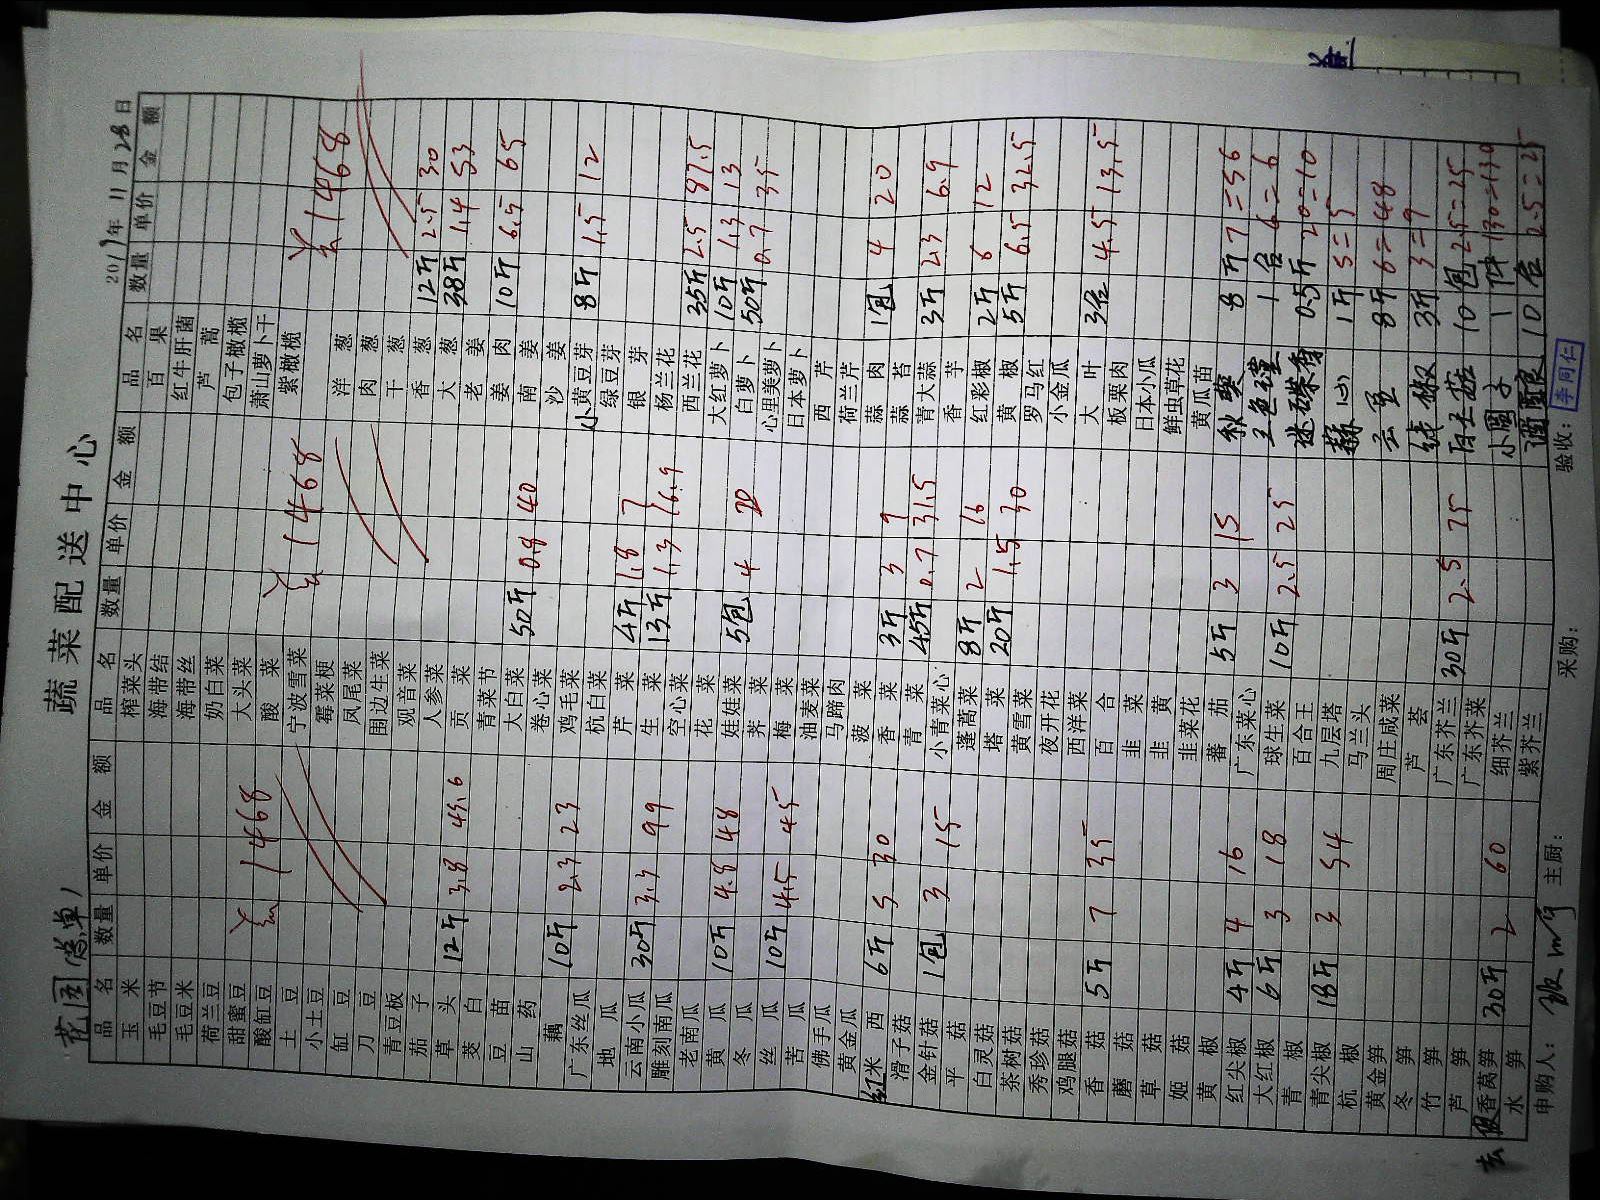 蔬菜配送中心
花园 总单
2017年11月28日
品名 数量 单价 金额
玉米
毛豆节
毛豆米
荷兰豆
甜蜜豆
酸缸豆 1468
土豆
小土豆
缸豆
刀豆
青豆板
茄子
草头 12斤 3.8 45.6
茭白
豆苗
山药
藕 10斤 2.3 23
广东丝瓜
地瓜
云南小瓜 30斤 3.3 99
雕刻南瓜
老南瓜
黄瓜 10斤 4.8 48
冬瓜
丝瓜 10斤 4.5 45
苦瓜
佛手瓜
黄金瓜
红米西 6斤 5 30
滑子菇
金针菇 1包 3 15
平菇
白灵菇
茶树菇
秀珍菇
鸡腿菇
香菇 5斤 7 35
蘑菇
草菇
姬菇
黄椒
红尖椒 4斤 4 16
大红椒 6斤 3 18
青椒
青尖椒 18斤 3 54
杭椒
黄金笋
冬笋
竹笋
芦笋
香莴笋 30斤 2 60
水笋
品名 数量 单价 金额
榨菜头
海带结
海带丝
奶白菜
大头菜
酸菜
宁波雪菜 1468
霉菜梗
凤尾菜
围边生菜
观音菜
人参菜
贡菜
青菜节
大白菜 50斤 0.8 40
卷心菜
鸡毛菜
杭白菜
芹菜 4斤 1.8 7
生菜 13斤 1.3 16.9
空心菜
花菜
娃娃菜 5包 4 20
荠菜
梅菜
油麦菜
马蹄肉
菠菜
香菜 3斤 3 9
青菜 45斤 0.7 31.5
小青菜心
蓬蒿菜 8斤 2 16
塔菜 20斤 1.5 30
黄雪菜
夜开花
西洋菜
百合
韭菜
韭黄
韭菜花
蕃茄 5斤 3 15
广东菜心
球生菜 10斤 2.5 25
百合王
九层塔
马兰头
周庄咸菜
芦荟
广东芥兰 30斤 2.5 75
广东芥菜
细芥兰
紫芥兰
品名 数量 单价 金额
百果
红牛肝菌
芦蒿
包子橄榄
萧山萝卜干
紫橄榄 1468
洋葱
肉葱
干葱
香葱 12斤 2.5 30
大葱 38斤 1.4 53
老姜
姜肉 10斤 6.5 65
南姜
沙姜
小黄豆芽 8斤 1.5 12
绿豆芽
银芽
杨兰花
西兰花 35斤 2.5 87.5
大红萝卜 10斤 1.3 13
白萝卜 50斤 0.7 35
心里美萝卜
日本萝卜
西芹
荷兰芹
蒜肉 1包 4 20
蒜苔
青大蒜 3斤 2.3 6.9
香芋
红彩椒 2斤 6 12
黄椒 5斤 6.5 32.5
罗马红
小金瓜
大叶 3 4.5 13.5
板栗肉
日本小瓜
鲜虫草花
黄瓜苗
秋葵 8斤 7=56
三色堇 1合 6=6
迷碟香 0.5斤 20=10
1斤 5=5
云豆 8斤 6=48
椒 3斤 3=9
白玉菇 10包 25=25
小圆子 1件 130=130
10 2.5=25
申购人: 主厨: 采购: 验收: 李同仁